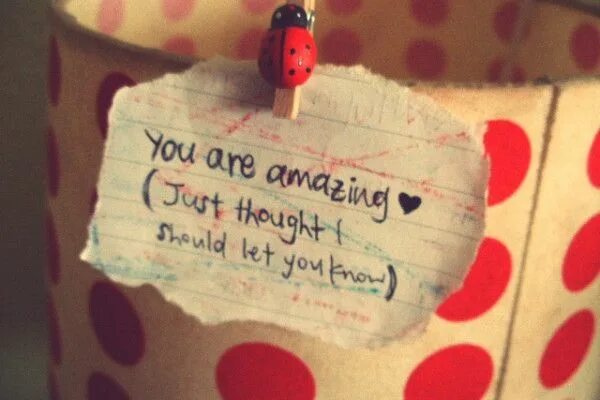 You are amazing ♥
(Just thought I
should let you know)